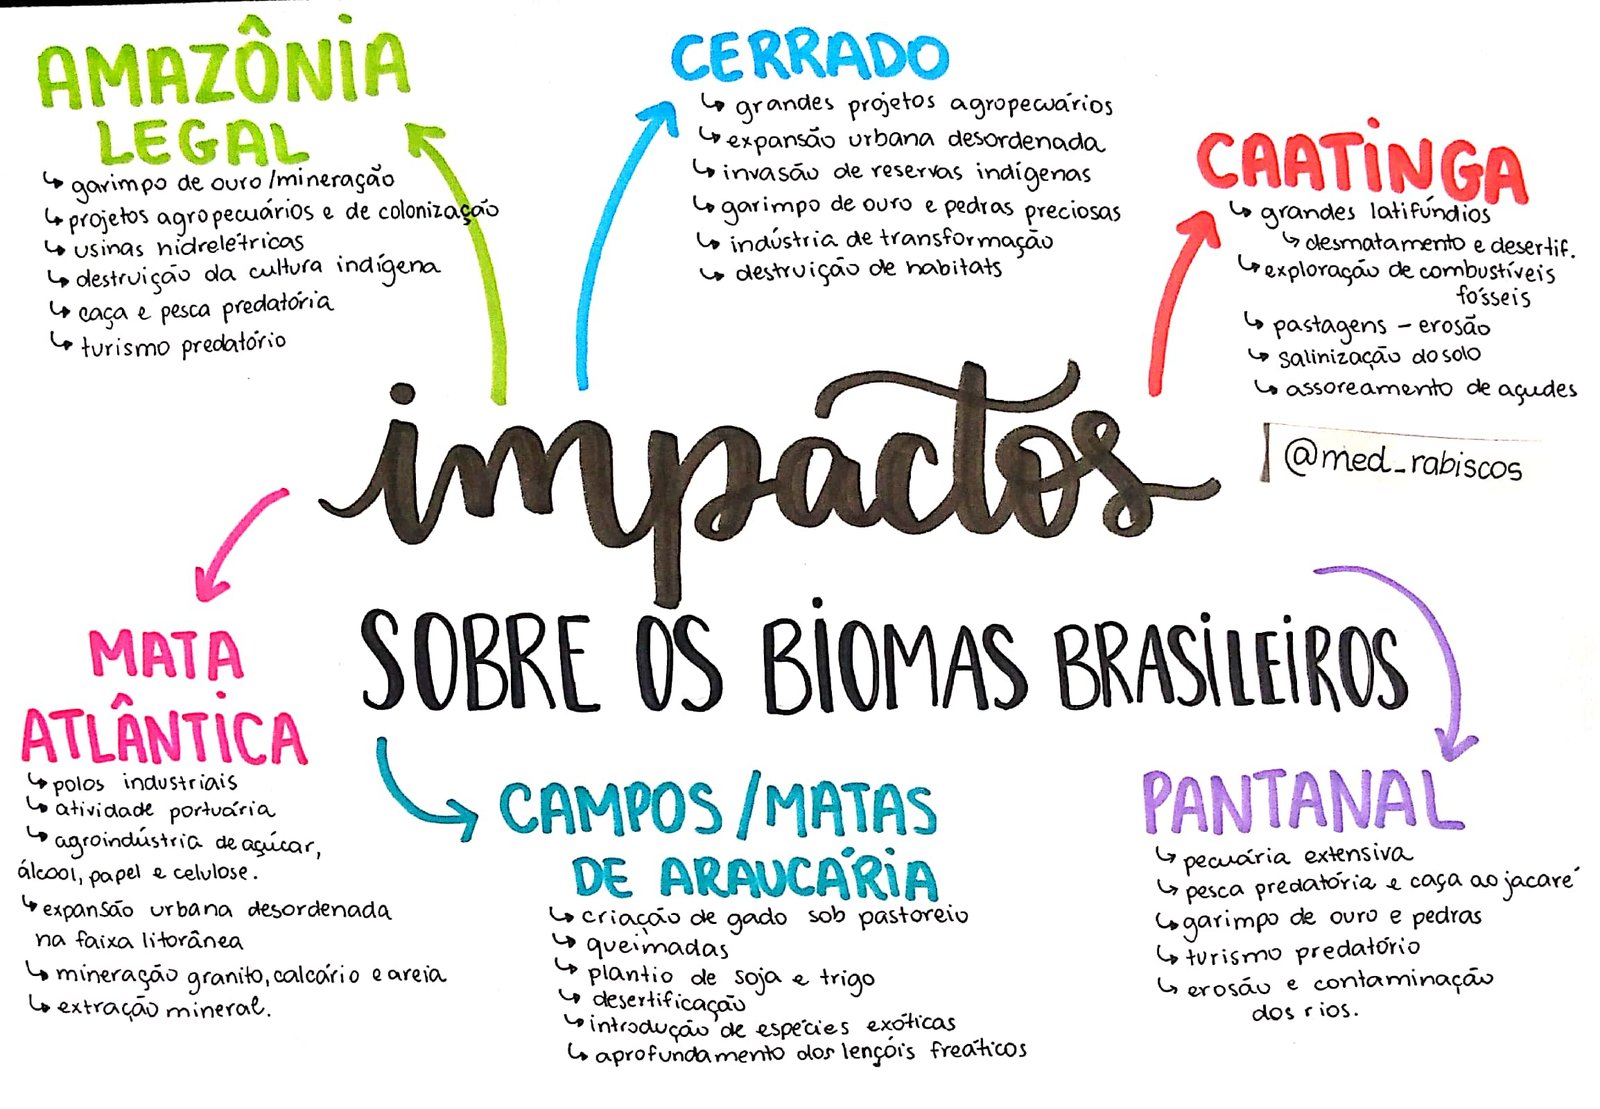 AMAZÔNIA
LEGAL
↳ garimpo de ouro/mineração
↳ projetos agropecuários e de colonização
↳ usinas hidrelétricas
↳ destruição da cultura indígena
↳ caça e pesca predatória
↳ turismo predatório
CERRADO
↳ grandes projetos agropecuários
↳ expansão urbana desordenada
↳ invasão de reservas indígenas
↳ garimpo de ouro e pedras preciosas
↳ indústria de transformação
↳ destruição de habitats
CAATINGA
↳ grandes latifúndios
↳ desmatamento e desertif.
↳ exploração de combustíveis
fósseis
↳ pastagens – erosão
↳ salinização do solo
↳ assoreamento de açudes
@med_rabiscos
impactos
SOBRE OS BIOMAS BRASILEIROS
MATA
ATLÂNTICA
↳ polos industriais
↳ atividade portuária
↳ agroindústria de açúcar,
álcool, papel e celulose.
↳ expansão urbana desordenada
na faixa litorânea
↳ mineração granito, calcário e areia
↳ extração mineral.
CAMPOS/MATAS
DE ARAUCÁRIA
↳ criação de gado sob pastoreio
↳ queimadas
↳ plantio de soja e trigo
↳ desertificação
↳ introdução de espécies exóticas
↳ aprofundamento dos lençóis freáticos
PANTANAL
↳ pecuária extensiva
↳ pesca predatória e caça ao jacaré
↳ garimpo de ouro e pedras
↳ turismo predatório
↳ erosão e contaminação
dos rios.